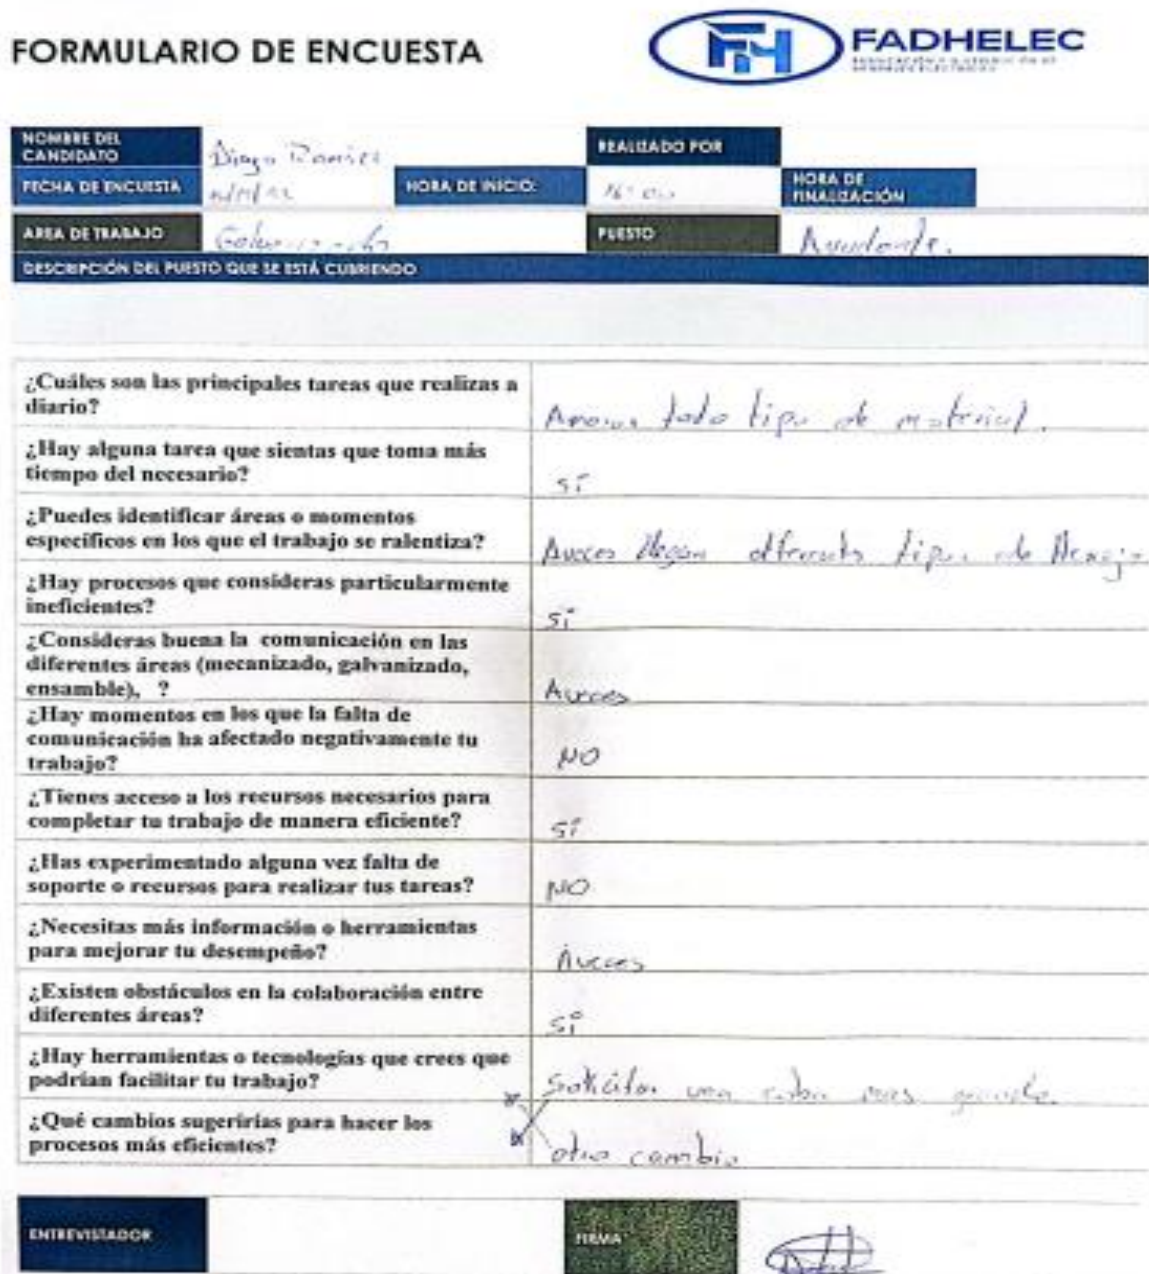 FORMULARIO DE ENCUESTA
FH FADHELEC
NOMBRE DEL CANDIDATO Diego REALIZADO POR
FECHA DE ENCUESTA HORA DE INICIO: HORA DE FINALIZACIÓN
AREA DE TRABAJO PUESTO Ayudante.
DESCRIPCIÓN DEL PUESTO QUE SE ESTÁ CUBRIENDO
¿Cuáles son las principales tareas que realizas a
diario?
todo tipo de material.
¿Hay alguna tarea que sientas que toma más
tiempo del necesario?
SÍ
¿Puedes identificar áreas o momentos
específicos en los que el trabajo se ralentiza?
Aveces llegan tipos de
¿Hay procesos que consideras particularmente
ineficientes?
SÍ
¿Consideras buena la comunicación en las
diferentes áreas (mecanizado, galvanizado,
ensamble), ?
Aveces
¿Hay momentos en los que la falta de
comunicación ha afectado negativamente tu
trabajo?
NO
¿Tienes acceso a los recursos necesarios para
completar tu trabajo de manera eficiente?
SÍ
¿Has experimentado alguna vez falta de
soporte o recursos para realizar tus tareas?
NO
¿Necesitas más información o herramientas
para mejorar tu desempeño?
Aveces
¿Existen obstáculos en la colaboración entre
diferentes áreas?
SÍ
¿Hay herramientas o tecnologías que crees que
podrían facilitar tu trabajo?
Solicitar una mas grande.
¿Qué cambios sugerirías para hacer los
procesos más eficientes?
otro cambio
ENTREVISTADOR FIRMA